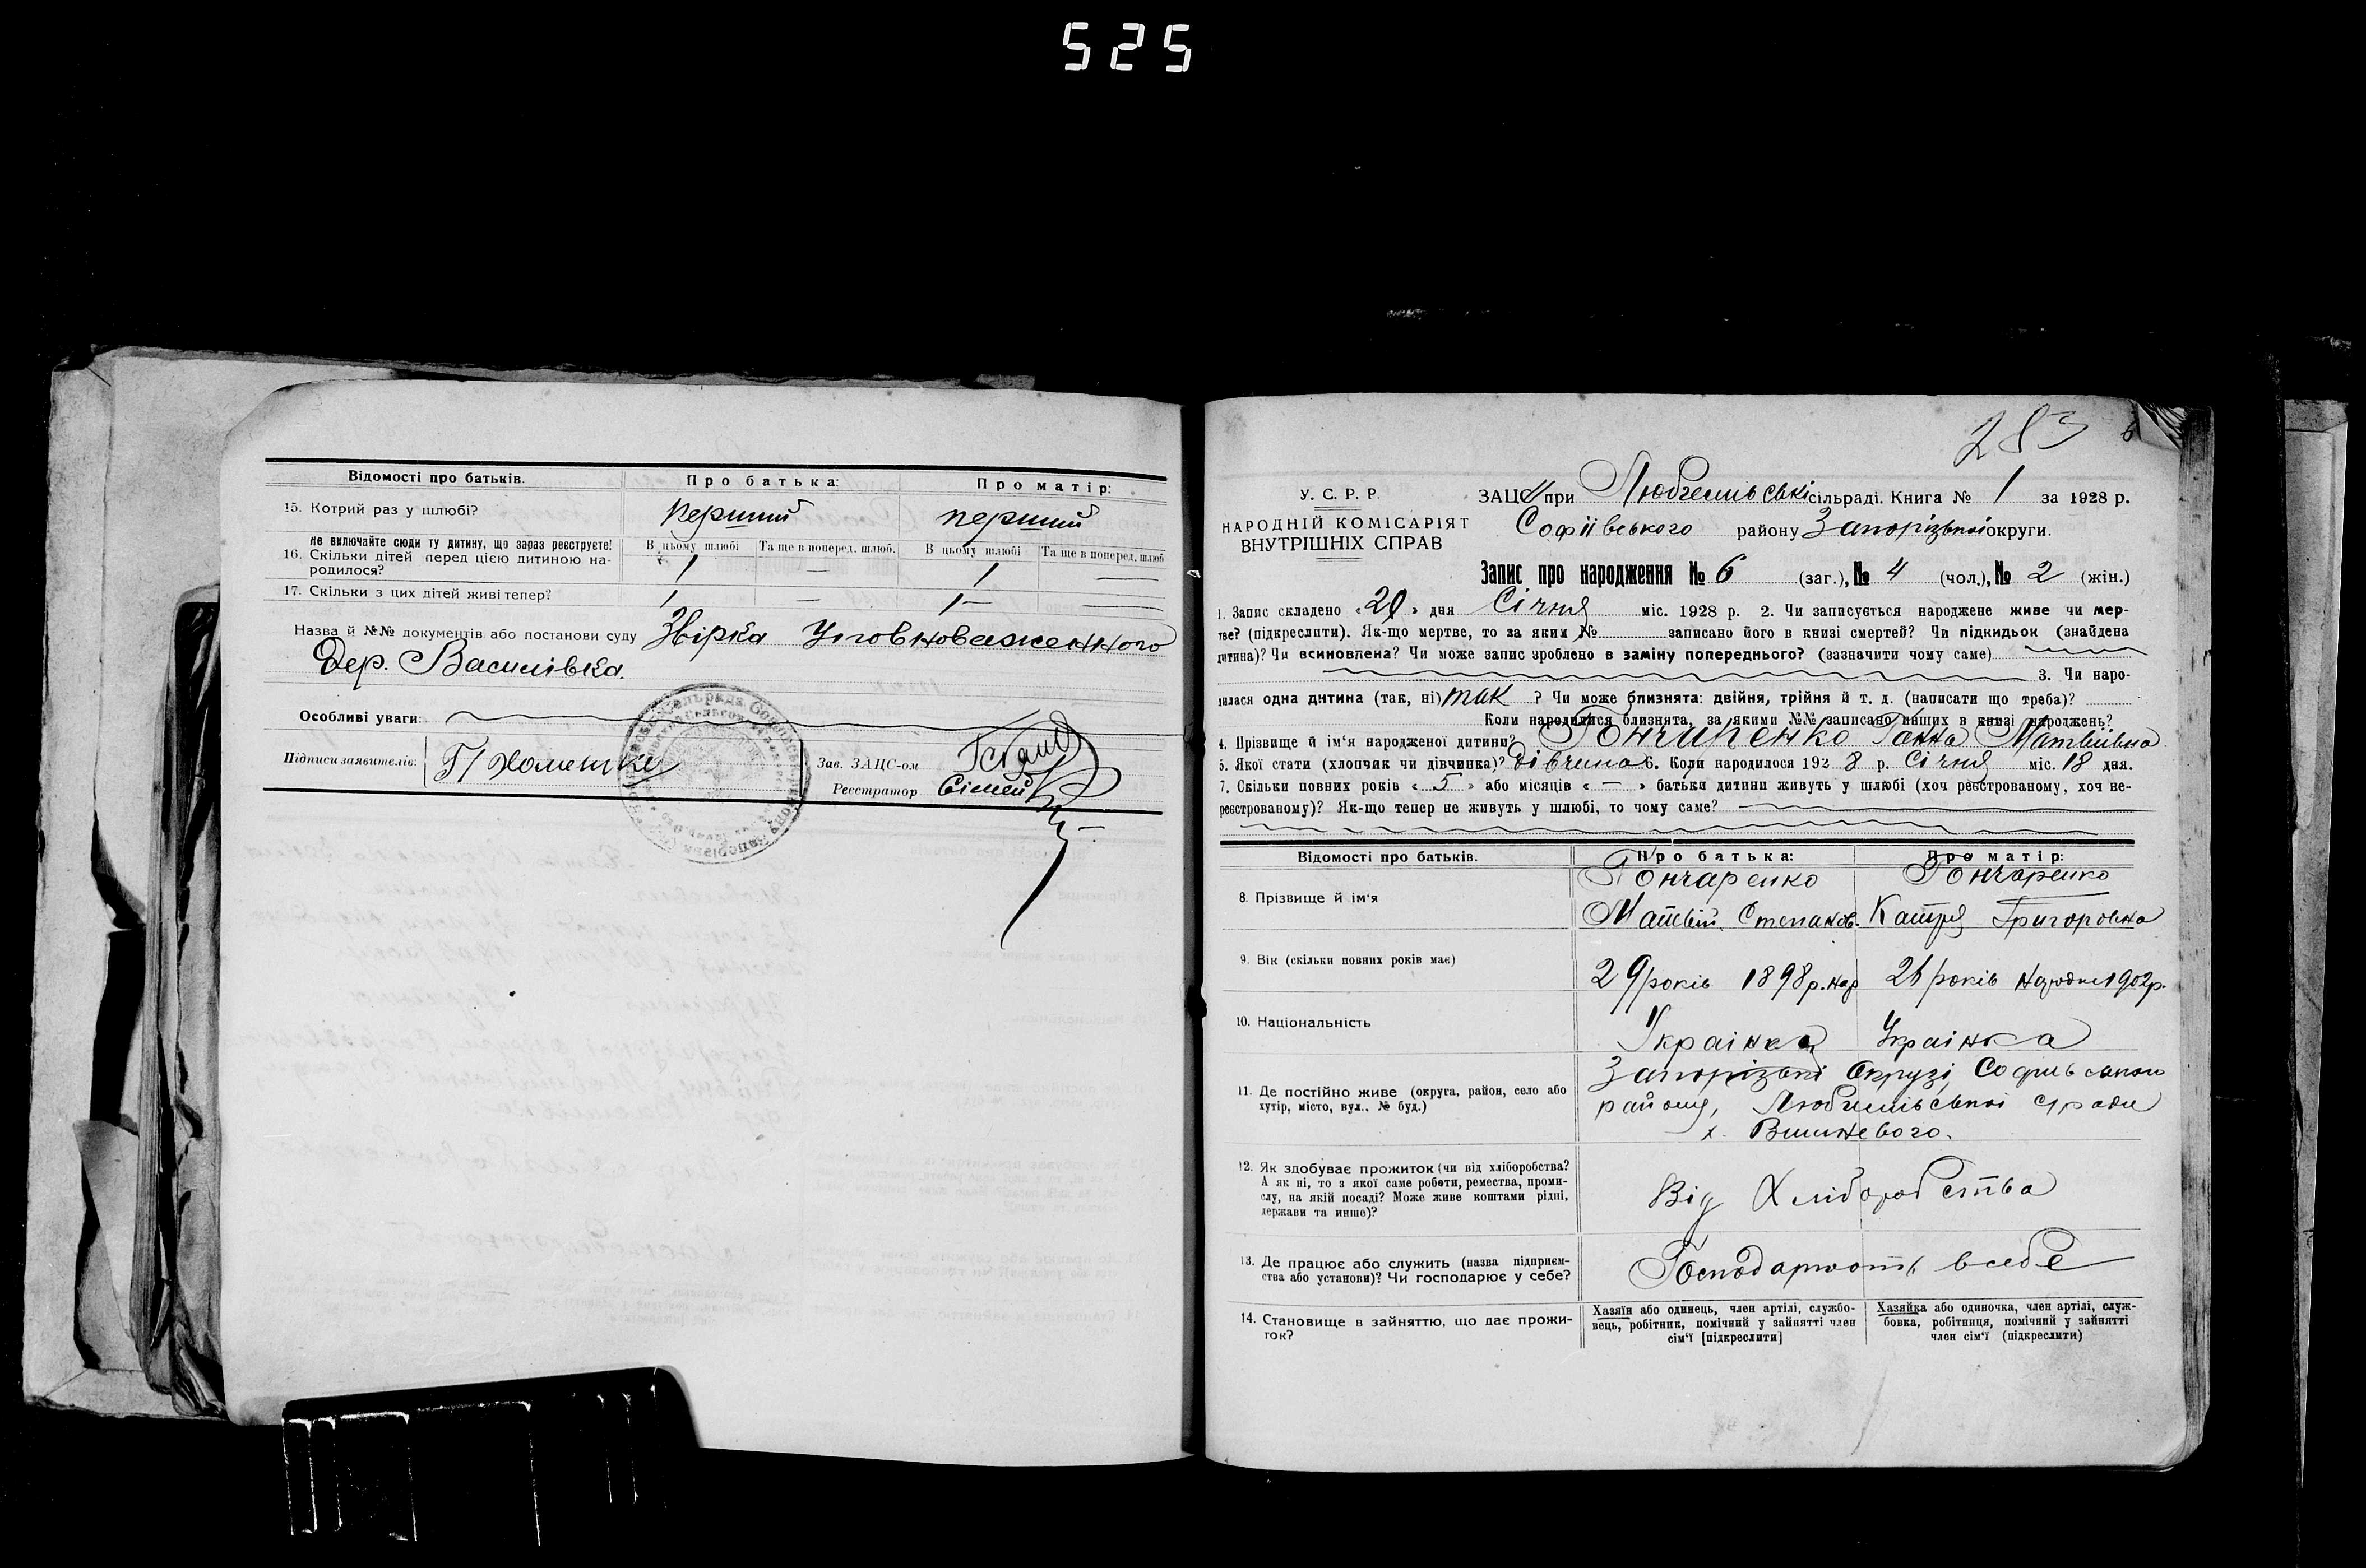 525
Відомості про батьків. Про батька: Про матір:
15. Котрий раз у шлюбі? перший перший
Не включайте сюди ту дитину, що зараз реєструєте! В цьому шлюбі Та ще в поперед. шлюб. В цьому шлюбі Та ще в поперед. шлюб
16. Скільки дітей перед цією дитиною на- 1 — 1 —
родилося?
17. Скільки з цих дітей живі тепер? 1 — 1 — —
Назва й №№ документів або постанови суду Звірка Уповноваженного
Дер. Василівка.
Особливі уваги:
Підписи заявителів: Зав. ЗАЦС-ом
Реєстратор
283
У. С. Р. Р. ЗАЦС при Любимівські сільраді. Книга № 1 за 1928 р.
НАРОДНІЙ КОМІСАРІЯТ Софіївського району Запорізької округи.
ВНУТРІШНІХ СПРАВ
Запис про народження № 6 (заг.), № 4 (чол.), № 2 (жін.)
1. Запис складено «20» дня Січня міс. 1928 р. 2. Чи записується народжене живе чи мер-
тве? (підкреслити). Як-що мертве, то за яким № записано його в книзі смертей? Чи підкидьок (знайдена
дитина)? Чи всиновлена? Чи може запис зроблено в заміну попереднього? (зазначити чому саме)
3. Чи наро-
дилася одна дитина (так, ні) так ? Чи може близнята: двійня, трійня й т. д. (написати що треба)?
Коли народилися близнята, за якими №№ записано инших в книзі народжень?
4. Прізвище й ім'я народженої дитини? Гончаренко Ганна Матвіївна
5. Якої стати (хлопчик чи дівчинка)? дівчина 6. Коли народилося 1928 р. Січня міс. 18 дня.
7. Скільки повних років «5» або місяців «—» батьки дитини живуть у шлюбі (хоч реєстрованому, хоч не-
реєстрованому)? Як-що тепер не живуть у шлюбі, то чому саме?
Відомості про батьків. Про батька: Про матір:
8. Прізвище й ім'я Гончаренко Гончаренко
Матвій Степанов. Катря Григоровна
9. Вік (скільки повних років має) 29 років 1898 р. нар 26 років 1902 р.
10. Національність Українка Українка
11. Де постійно живе (округа, район, село або Запорізькі Окрузі, Софиівського
хутір, місто, вул., № буд.) району, Любимівської с/ради
х. Вишневого.
12. Як здобуває прожиток (чи від хліборобства?
А як ні, то з якої саме роботи, ремества, проми-
слу, на якій посаді? Може живе коштами рідні, Від Хліборобства
держави та инше)?
13. Де працює або служить (назва підприєм-
ства або установи)? Чи господарює у себе? Господарюють в себе
14. Становище в зайняттю, що дає прожи-
ток?
Хазяїн або одинець, член артілі, службо-
вець, робітник, помічний у зайнятті член
сім'ї [підкреслити]
Хазяйка або одиночка, член артілі, служ-
бовка, робітниця, помічний у зайнятті
член сім'ї (підкреслити)